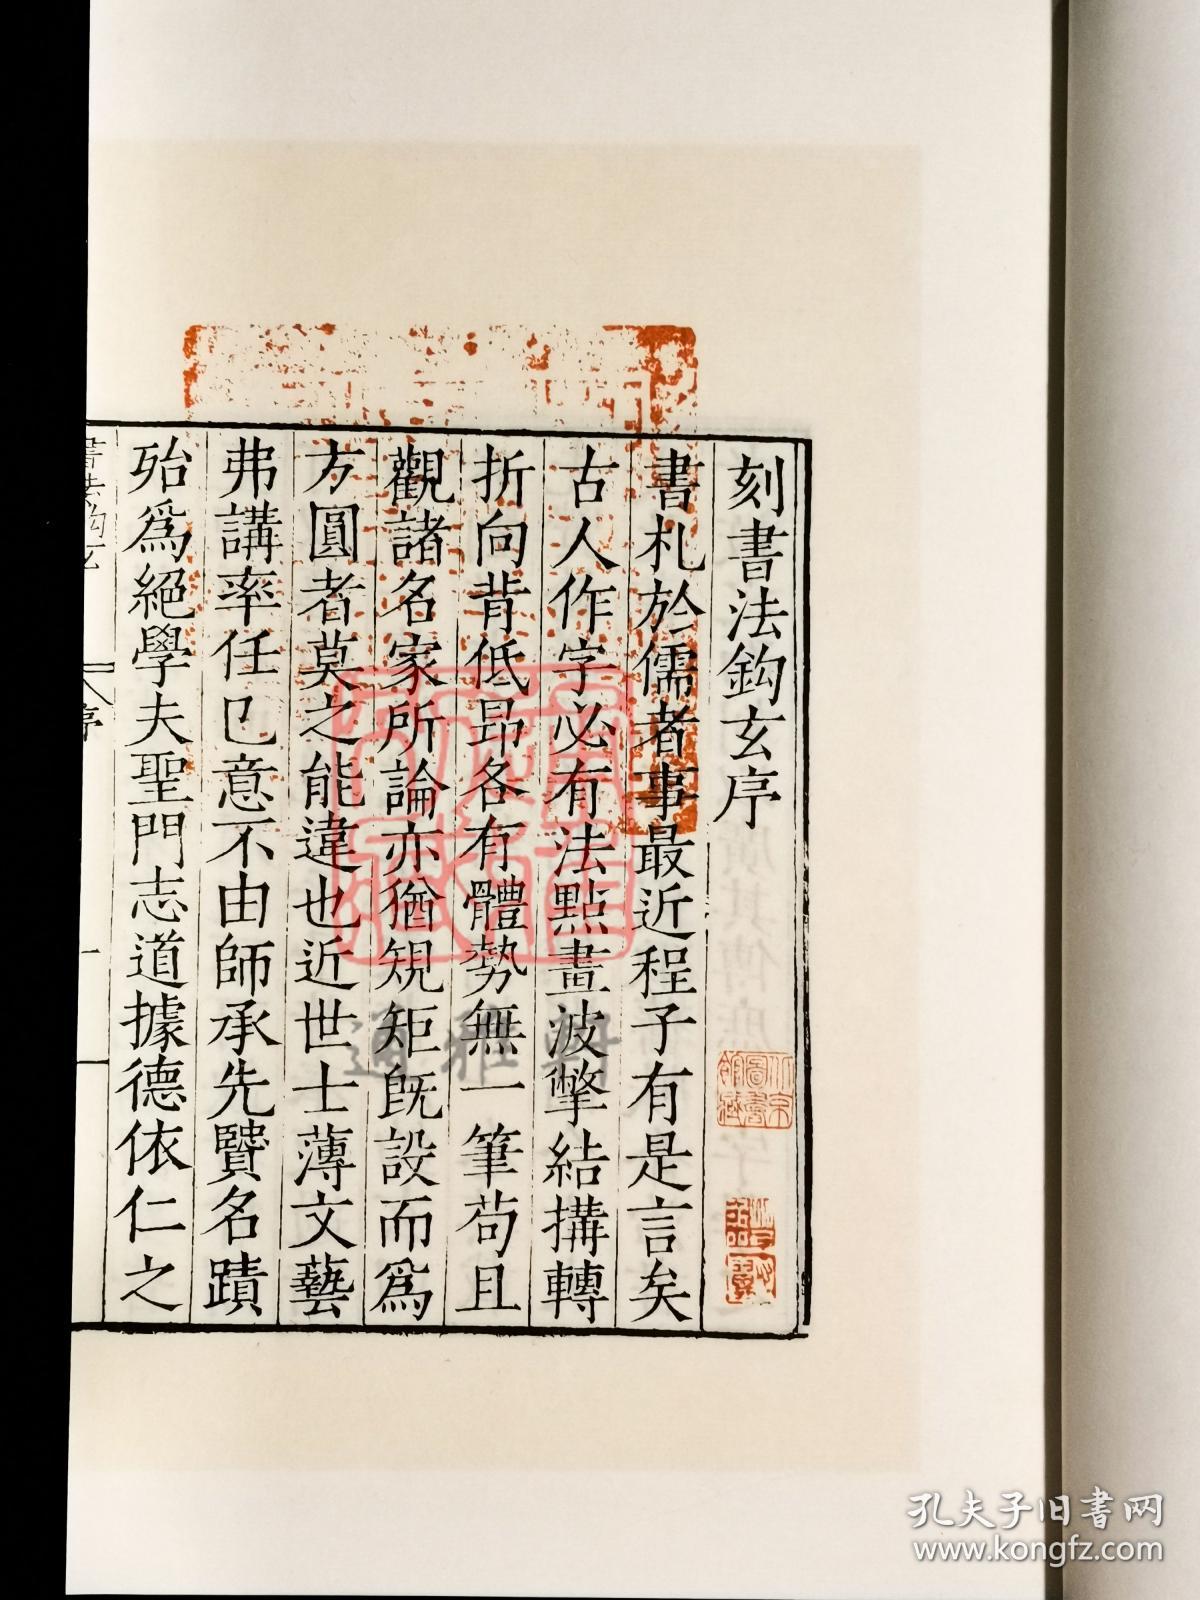 刻書法鈎玄序
書札於儒者事最近程子有是言矣
古人作字必有法點畫波撆結搆轉
折向背低昂各有體勢無一筆苟且
觀諸名家所論亦猶規矩旣設而爲
方圓者莫之能違也近世士薄文藝
弗講率任己意不由師承先賢名蹟
殆爲絕學夫聖門志道據德依仁之
序
一
道雅軒
孔夫子旧書网
www.kongfz.com